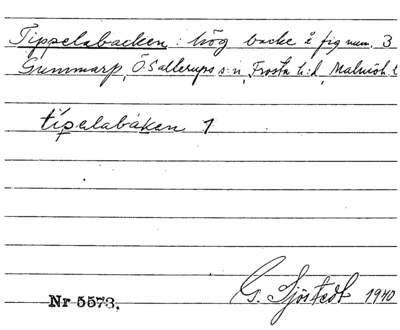 Tippelabacken : hög backe å fig num. 3
Gummarp, Ö Sallerups s:n, Frosta h:d, Malmöh. l
típelabákan 1
Nr 5573. G. Sjöstedt 1940